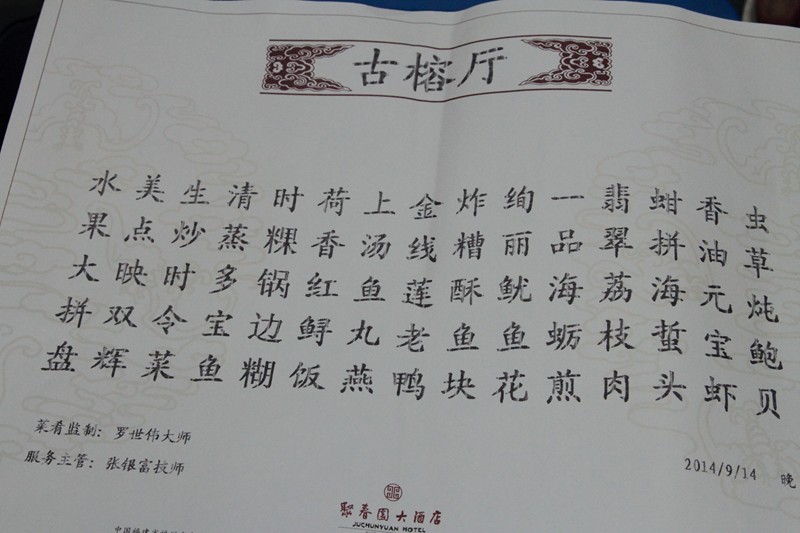 古榕厅
虫草炖鲍贝
香油元宝虾
蚶拼海蜇头
翡翠荔枝肉
一品海蛎煎
绚丽鱿鱼花
炸糟酥鱼块
金线莲老鸭
上汤鱼丸燕
荷香红鲟饭
时粿锅边糊
清蒸多宝鱼
生炒时令菜
美点映双辉
水果大拼盘
菜肴监制：罗世伟大师
服务主管：张银富技师
2014/9/14 晚
聚春園大酒店
JUCHUNYUAN HOTEL